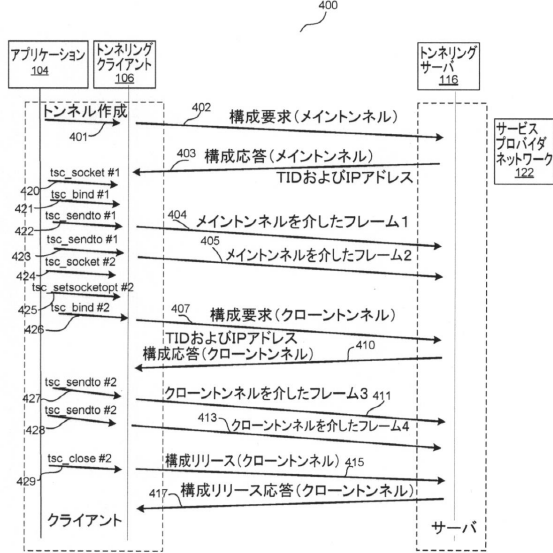 400
アプリケーション
104
トンネリング
クライアント
106
トンネリング
サーバ
116
サービス
プロバイダ
ネットワーク
122
トンネル作成
401
402
構成要求(メイントンネル)
構成応答(メイントンネル)
403
TIDおよびIPアドレス
tsc_socket #1
420
tsc_bind #1
421
tsc_sendto #1
422
404
メイントンネルを介したフレーム1
tsc_sendto #1
423
405
メイントンネルを介したフレーム2
tsc_socket #2
424
tsc_setsocketopt #2
425
tsc_bind #2
426
407
構成要求(クローントンネル)
TIDおよびIPアドレス
構成応答(クローントンネル)
410
tsc_sendto #2
427
クローントンネルを介したフレーム3
411
tsc_sendto #2
428
413
クローントンネルを介したフレーム4
tsc_close #2
429
構成リリース(クローントンネル)
415
417
構成リリース応答(クローントンネル)
クライアント
サーバ